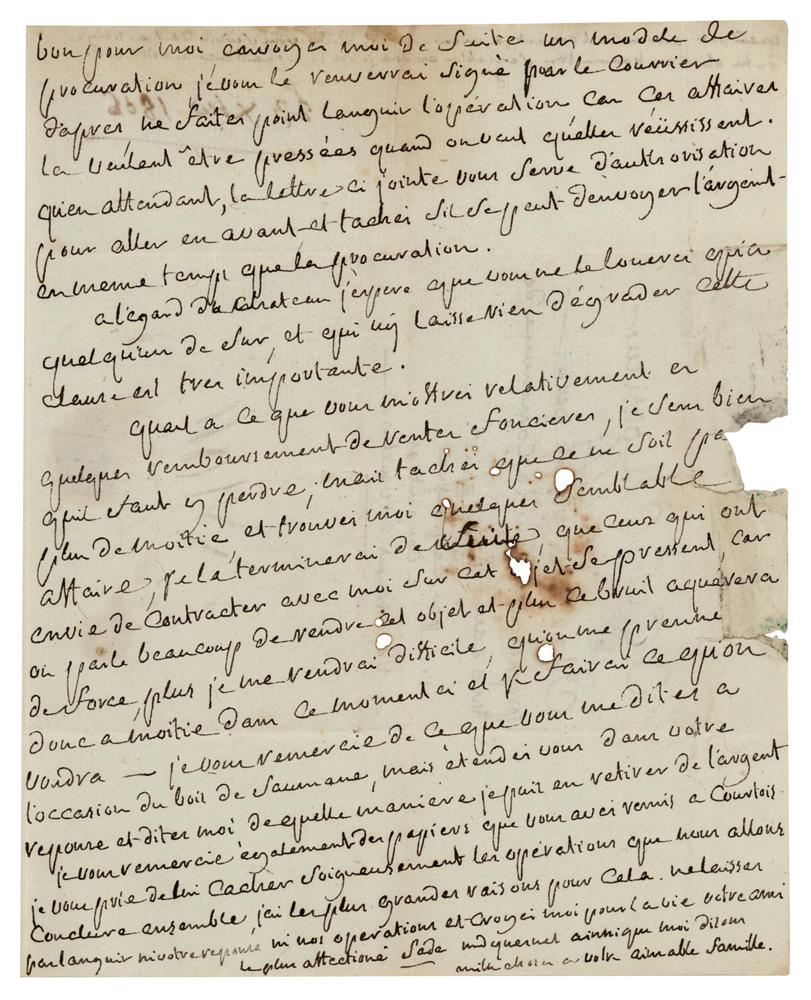 bon pour moi envoyez moi de suite un modele de
procuration je vous le renverrai signé par le courrier
d'apres ne faites point languir l'opération car ces affaires
la veulent être pressées quand on veut quelles réüssissent.
qu'en attendant, la lettre ci jointe vous serve d'authorisation
pour aller en avant et tachés sil se peut d'envoyer l'argent
en meme temps que la procuration.
a l'egard du chateau j'espere que vous ne le louerez qu'a
quelqu'un de sur, et qui n'y laisse rien dégrader cette
clause est tres importante.
quant a ce que vous m'offrez relativement en
quelques remboursement de rentes foncieres, je sens bien
quil faut y perdre, mais tachés que ce ne soit pa
plus de moitié, et trouvez moi quelques semblable
affaire, je la terminerai de suite, que ceux qui ont
envie de contracter avec moi sur cet objet se pressent, car
on parle beaucoup de rendre cet objet et plus ce bruit aquerera
de force, plus je me rendrai difficile, qu'on me prenne
donc a moitié dans ce moment ci et je fairai ce qu'on
voudra — je vous remercie de ce que vous me dites a
l'occasion du bois de Saumane, mais étendez vous dans votre
reponse et dites moi de quelle maniere je puis en retirer de l'argent
je vous remercie également des papiers que vous avez remis a Courtois
je vous prie de lui cacher soigneusement les opérations que nous allons
conclure ensemble j'ai les plus grandes raisons pour cela. ne laissez
pas languir ni votre reponse ni nos operations et croyez moi pour la vie votre ami
le plus affectioné Sade md quesnet ainsi que moi disons
mille choses a votre aimable famille.